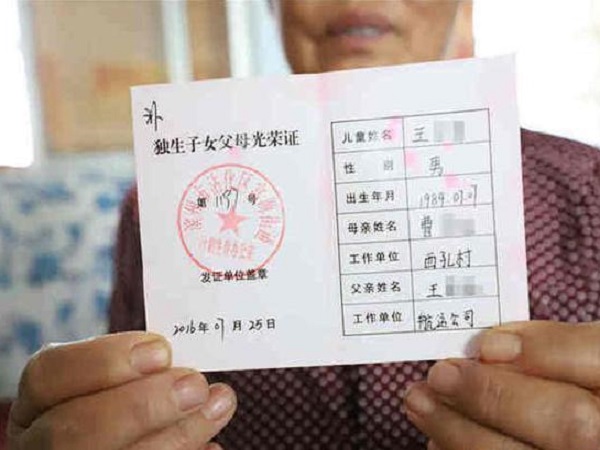 补
独生子女父母光荣证
第1137号
计划生育办公室
发证单位签章
2016年07月25日
儿童姓名 王
性别 男
出生年月 1989.07.07
母亲姓名 曹
工作单位 西孔村
父亲姓名 王
工作单位 航运公司